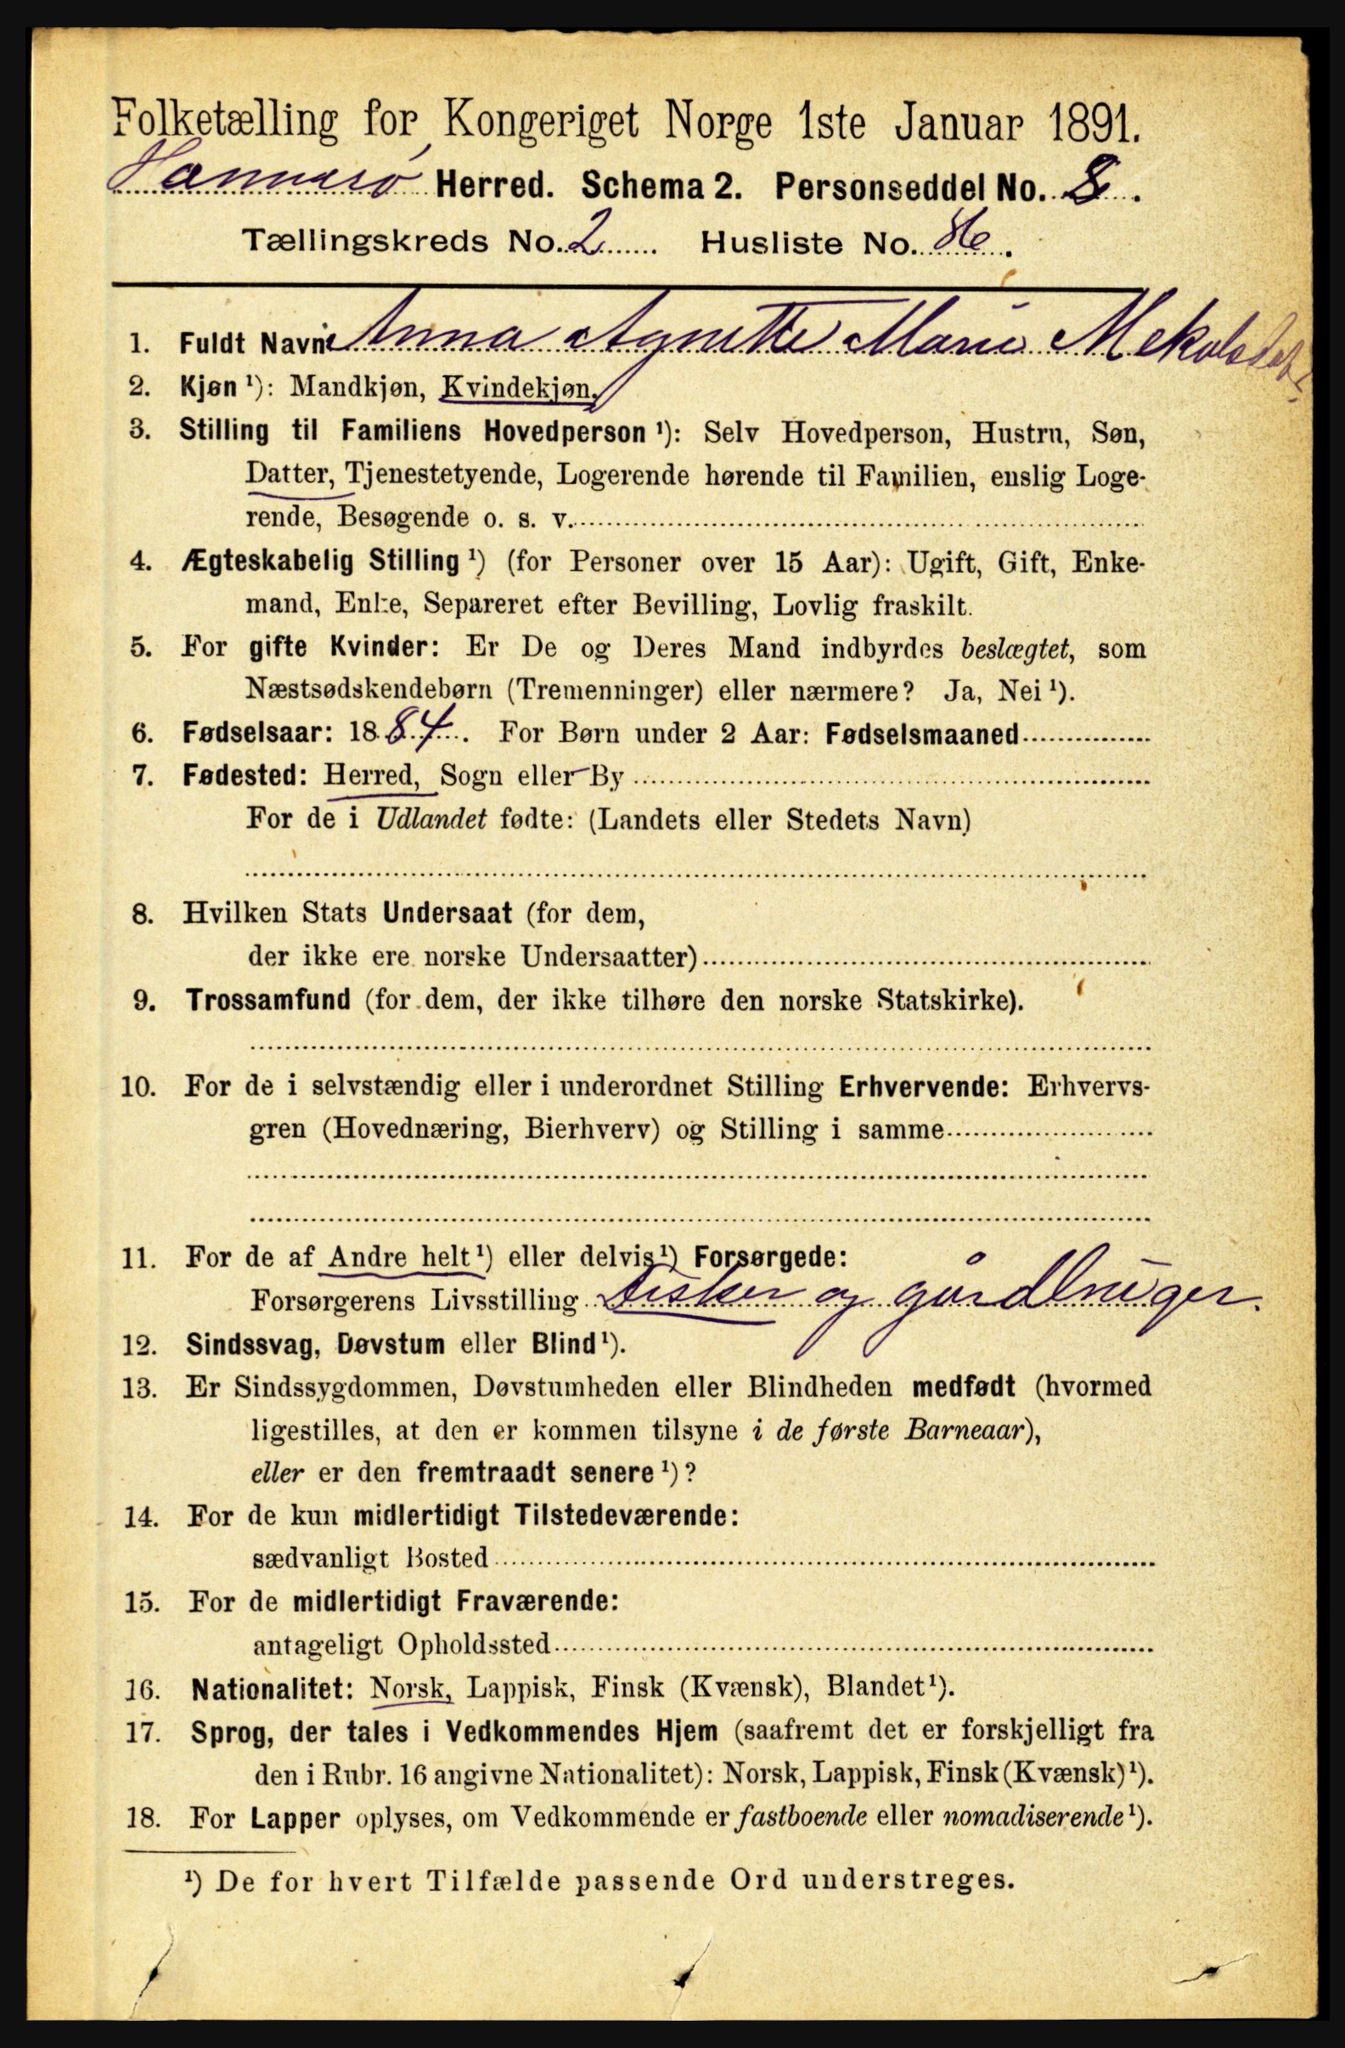 Folketælling for Kongeriget Norge 1ste Januar 1891.
Hammarø Herred. Schema 2. Personseddel No. 8.
Tællingskreds No. 2 Husliste No. 86.
1. Fuldt Navn Anna Agnette Marie Mekalsdat.
2. Kjøn ¹): Mandkjøn, Kvindekjøn.
3. Stilling til Familiens Hovedperson ¹): Selv Hovedperson, Hustru, Søn,
Datter, Tjenestetyende, Logerende hørende til Familien, enslig Loge-
rende, Besøgende o. s. v.
4. Ægteskabelig Stilling ¹) (for Personer over 15 Aar): Ugift, Gift, Enke-
mand, Enke, Separeret efter Bevilling, Lovlig fraskilt.
5. For gifte Kvinder: Er De og Deres Mand indbyrdes beslægtet, som
Næstsødskendebørn (Tremenninger) eller nærmere? Ja, Nei ¹).
6. Fødselsaar: 1884. For Børn under 2 Aar: Fødselsmaaned
7. Fødested: Herred, Sogn eller By
For de i Udlandet fødte: (Landets eller Stedets Navn)
8. Hvilken Stats Undersaat (for dem,
der ikke ere norske Undersaatter)
9. Trossamfund (for dem, der ikke tilhøre den norske Statskirke).
10. For de i selvstændig eller i underordnet Stilling Erhvervende: Erhvervs-
gren (Hovednæring, Bierhverv) og Stilling i samme
11. For de af Andre helt ¹) eller delvis ¹) Forsørgede:
Forsørgerens Livsstilling Fisker og gårdbruger.
12. Sindssvag, Døvstum eller Blind ¹).
13. Er Sindssygdommen, Døvstumheden eller Blindheden medfødt (hvormed
ligestilles, at den er kommen tilsyne i de første Barneaar),
eller er den fremtraadt senere ¹)?
14. For de kun midlertidigt Tilstedeværende:
sædvanligt Bosted
15. For de midlertidigt Fraværende:
antageligt Opholdssted
16. Nationalitet: Norsk, Lappisk, Finsk (Kvænsk), Blandet ¹).
17. Sprog, der tales i Vedkommendes Hjem (saafremt det er forskjelligt fra
den i Rubr. 16 angivne Nationalitet): Norsk, Lappisk, Finsk (Kvænsk) ¹).
18. For Lapper oplyses, om Vedkommende er fastboende eller nomadiserende ¹).
¹) De for hvert Tilfælde passende Ord understreges.